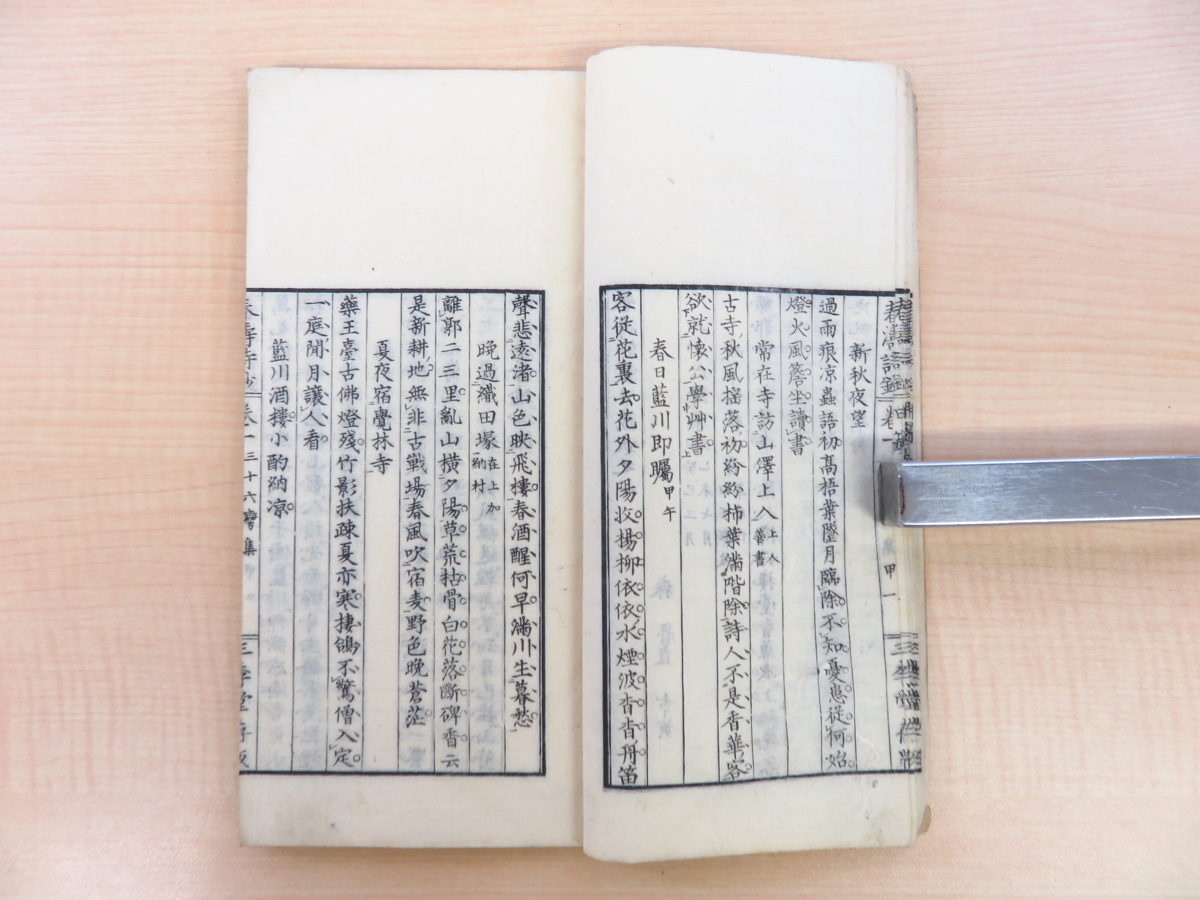 新秋夜望
過雨痕凉蟲語初高梧葉墮月臨除不知憂患從何始
燈火風簷坐讀書
常在寺訪山澤上人上人善書
古寺秋風搖落初紛紛柿葉滿階除詩人不是香華客
欲就懷公學艸書
春日藍川即矚甲午
客從花裏去花外夕陽收楊柳依依水煙波杳杳舟笛
聲悲遠渚山色映飛樓春酒醒何早滿川生暮愁
晚過織田塚在上加納村
離郭二三里亂山橫夕陽草荒枯骨白花落斷碑香云
是新耕地無非古戰場春風吹宿麦野色晚蒼茫
夏夜宿覺林寺
藥王臺古佛燈殘竹影扶疎夏亦寒棲鴿不驚僧入定
一庭閒月讓人看
藍川酒樓小酌納凉
卷一三十六灣集